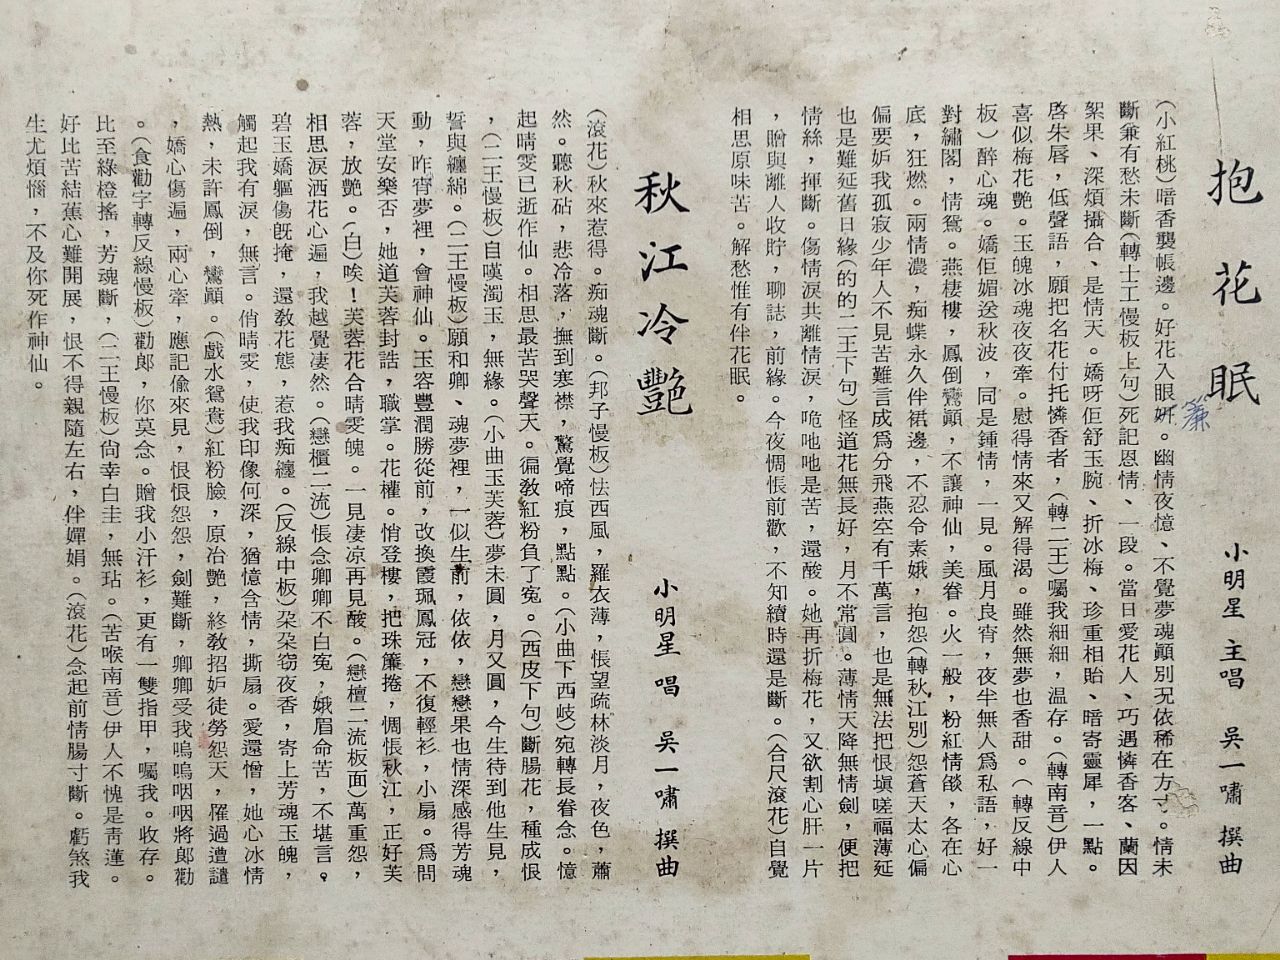 抱花眠
小明星 主唱 吳一嘯 撰曲
簾
(小紅桃)暗香襲帳邊。好花入眼妍。幽情夜憶、不覺夢魂顚別況依稀在方寸。情未
斷兼有愁未斷(轉士工慢板上句)死記恩情、一段。當日愛花人、巧遇憐香客、蘭因
絮果、深煩攝合、是情天。嬌呀佢舒玉腕、折冰梅、珍重相貽、暗寄靈犀,一點。
啓朱唇,低聲語,願把名花付托憐香者,(轉二王)囑我細細,温存。(轉南音)伊人
喜似梅花艷。玉魄冰魂夜夜牽。慰得情來又解得渴。雖然無夢也香甜。(轉反線中
板)醉心魂。嬌佢媚送秋波,同是鍾情,一見。風月良宵,夜半無人爲私語,好一
對繡閣,情鴛。燕棲樓,鳳倒鸞顚,不讓神仙,美眷。火一般,粉紅情燄,各在心
底,狂燃。兩情濃,痴蝶永久伴裙邊,不忍令素娥,抱怨(轉秋江別)怨蒼天太心偏
偏要妒我孤寂少年人不見苦難言成爲分飛燕空有千萬言,也是無法把恨塡嗟福薄延
也是難延舊日緣(的的二王下句)怪道花無長好,月不常圓。薄情天降無情劍,便把
情絲,揮斷。傷情淚共離情淚,咃吔吔是苦,還酸。她再折梅花,又欲割心肝一片
,贈與離人收貯,聊誌,前緣。今夜惆悵前歡,不知續時還是斷。(合尺滾花)自覺
相思原味苦。解愁惟有伴花眠。
秋江冷艷
小明星 唱 吳一嘯 撰曲
(滾花)秋來惹得。痴魂斷。(邦子慢板)怯西風,羅衣薄,悵望疏林淡月,夜色,蕭
然。聽秋砧,悲冷落,撫到寒襟,驚覺啼痕,點點。(小曲下西岐)宛轉長眷念。憶
起晴雯已逝作仙。相思最苦哭聲天。徧教紅粉負了冤。(西皮下句)斷腸花,種成恨
,(二王慢板)自嘆濁玉,無緣。(小曲玉芙蓉)夢未圓,月又圓,今生待到他生見,
誓與纏綿。(二王慢板)願和卿、魂夢裡,一似生前,依依,戀戀果也情深感得芳魂
動,昨宵夢裡,會神仙。玉容豐潤勝從前,改換霞珮鳳冠,不復輕衫,小扇。爲問
天堂安樂否,她道芙蓉封誥,職掌。花權。悄登樓,把珠簾捲,惆悵秋江,正好芙
蓉,放艷。(白)唉!芙蓉花合晴雯魄。一見凄凉再見酸。(戀檀二流板面)萬重怨,
相思淚洒花心遍,我越覺凄然。(戀櫃二流)悵念卿卿不白冤,娥眉命苦,不堪言。
碧玉嬌軀傷旣掩,還敎花態,惹我痴纏。(反線中板)朶朶窈夜香,寄上芳魂玉魄,
觸起我有淚,無言。俏晴雯,使我印像何深,猶憶含情,撕扇。愛還憎,她心冰情
熱,未許鳳倒,鸞顚。(戲水鴛鴦)紅粉臉,原冶艷,終敎招妒徒勞怨天,罹過遭譴
,嬌心傷遍,兩心牽,應記偸來見,恨恨怨怨,劍難斷,卿卿受我嗚嗚咽咽將郞勸
。(食勸字轉反線慢板)勸郞,你莫念。贈我小汗衫,更有一雙指甲,囑我。收存。
比至綠橙搖,芳魂斷,(二王慢板)尙幸白圭,無玷。(苦喉南音)伊人不愧是靑蓮。
好比苦結蕉心難開展,恨不得親隨左右,伴嬋娟。(滾花)念起前情腸寸斷。虧煞我
生尤煩惱,不及你死作神仙。